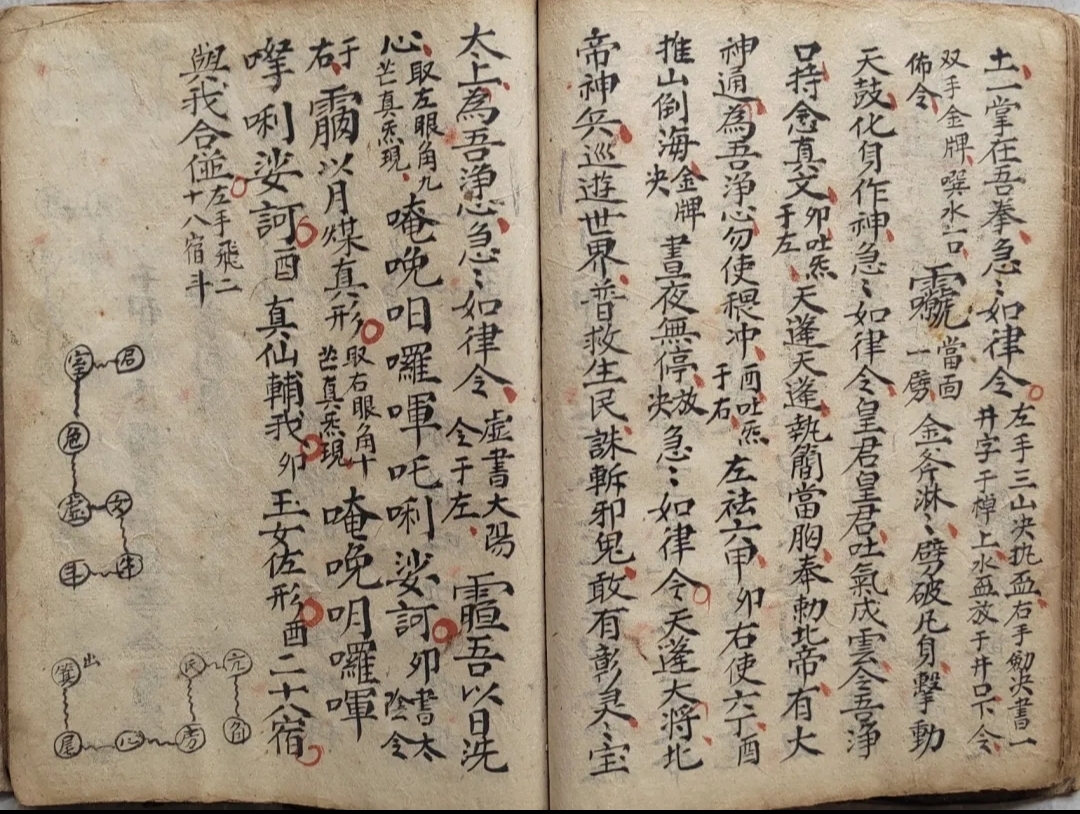 土一掌在吾拳急〻如律令 左手三山決执盃右手劒決書一
井字于棹上水盃放于井口下令
双手金牌噀水一口
佈令 當面
一劈 金斧淋〻劈破凡身擊動
天鼓化身作神急〻如律令皇君皇君吐氣成雲令吾淨
口持念真文 卯吐炁
于左 天蓬天蓬執簡當胸奉勅北帝有大
神通為吾淨心勿使穢冲 酉吐炁
于右 左祛六甲 卯 右使六丁 酉
推山倒海 金牌
决 晝夜無停 放
决 急〻如律令天蓬大将北
帝神兵巡遊世界普救生民誅斬邪鬼敢有彰灵〻宝
太上為吾淨心急〻如律令 虛書大陽
令于左 吾以日洗
心 取左眼角九
芒真炁現 唵晚囉㖔吒唎娑訶 卯 書太
陰令
于
右 以月煤真形 取右眼角十
芒真炁現 唵晚明囉㖔
唎娑訶 酉 真仙輔我 卯 玉女佐形 酉 二十八宿
與我合並 左手飛二
十八宿斗
室 危 虛 女 牛
出 箕 尾 心 房 氐 亢 角